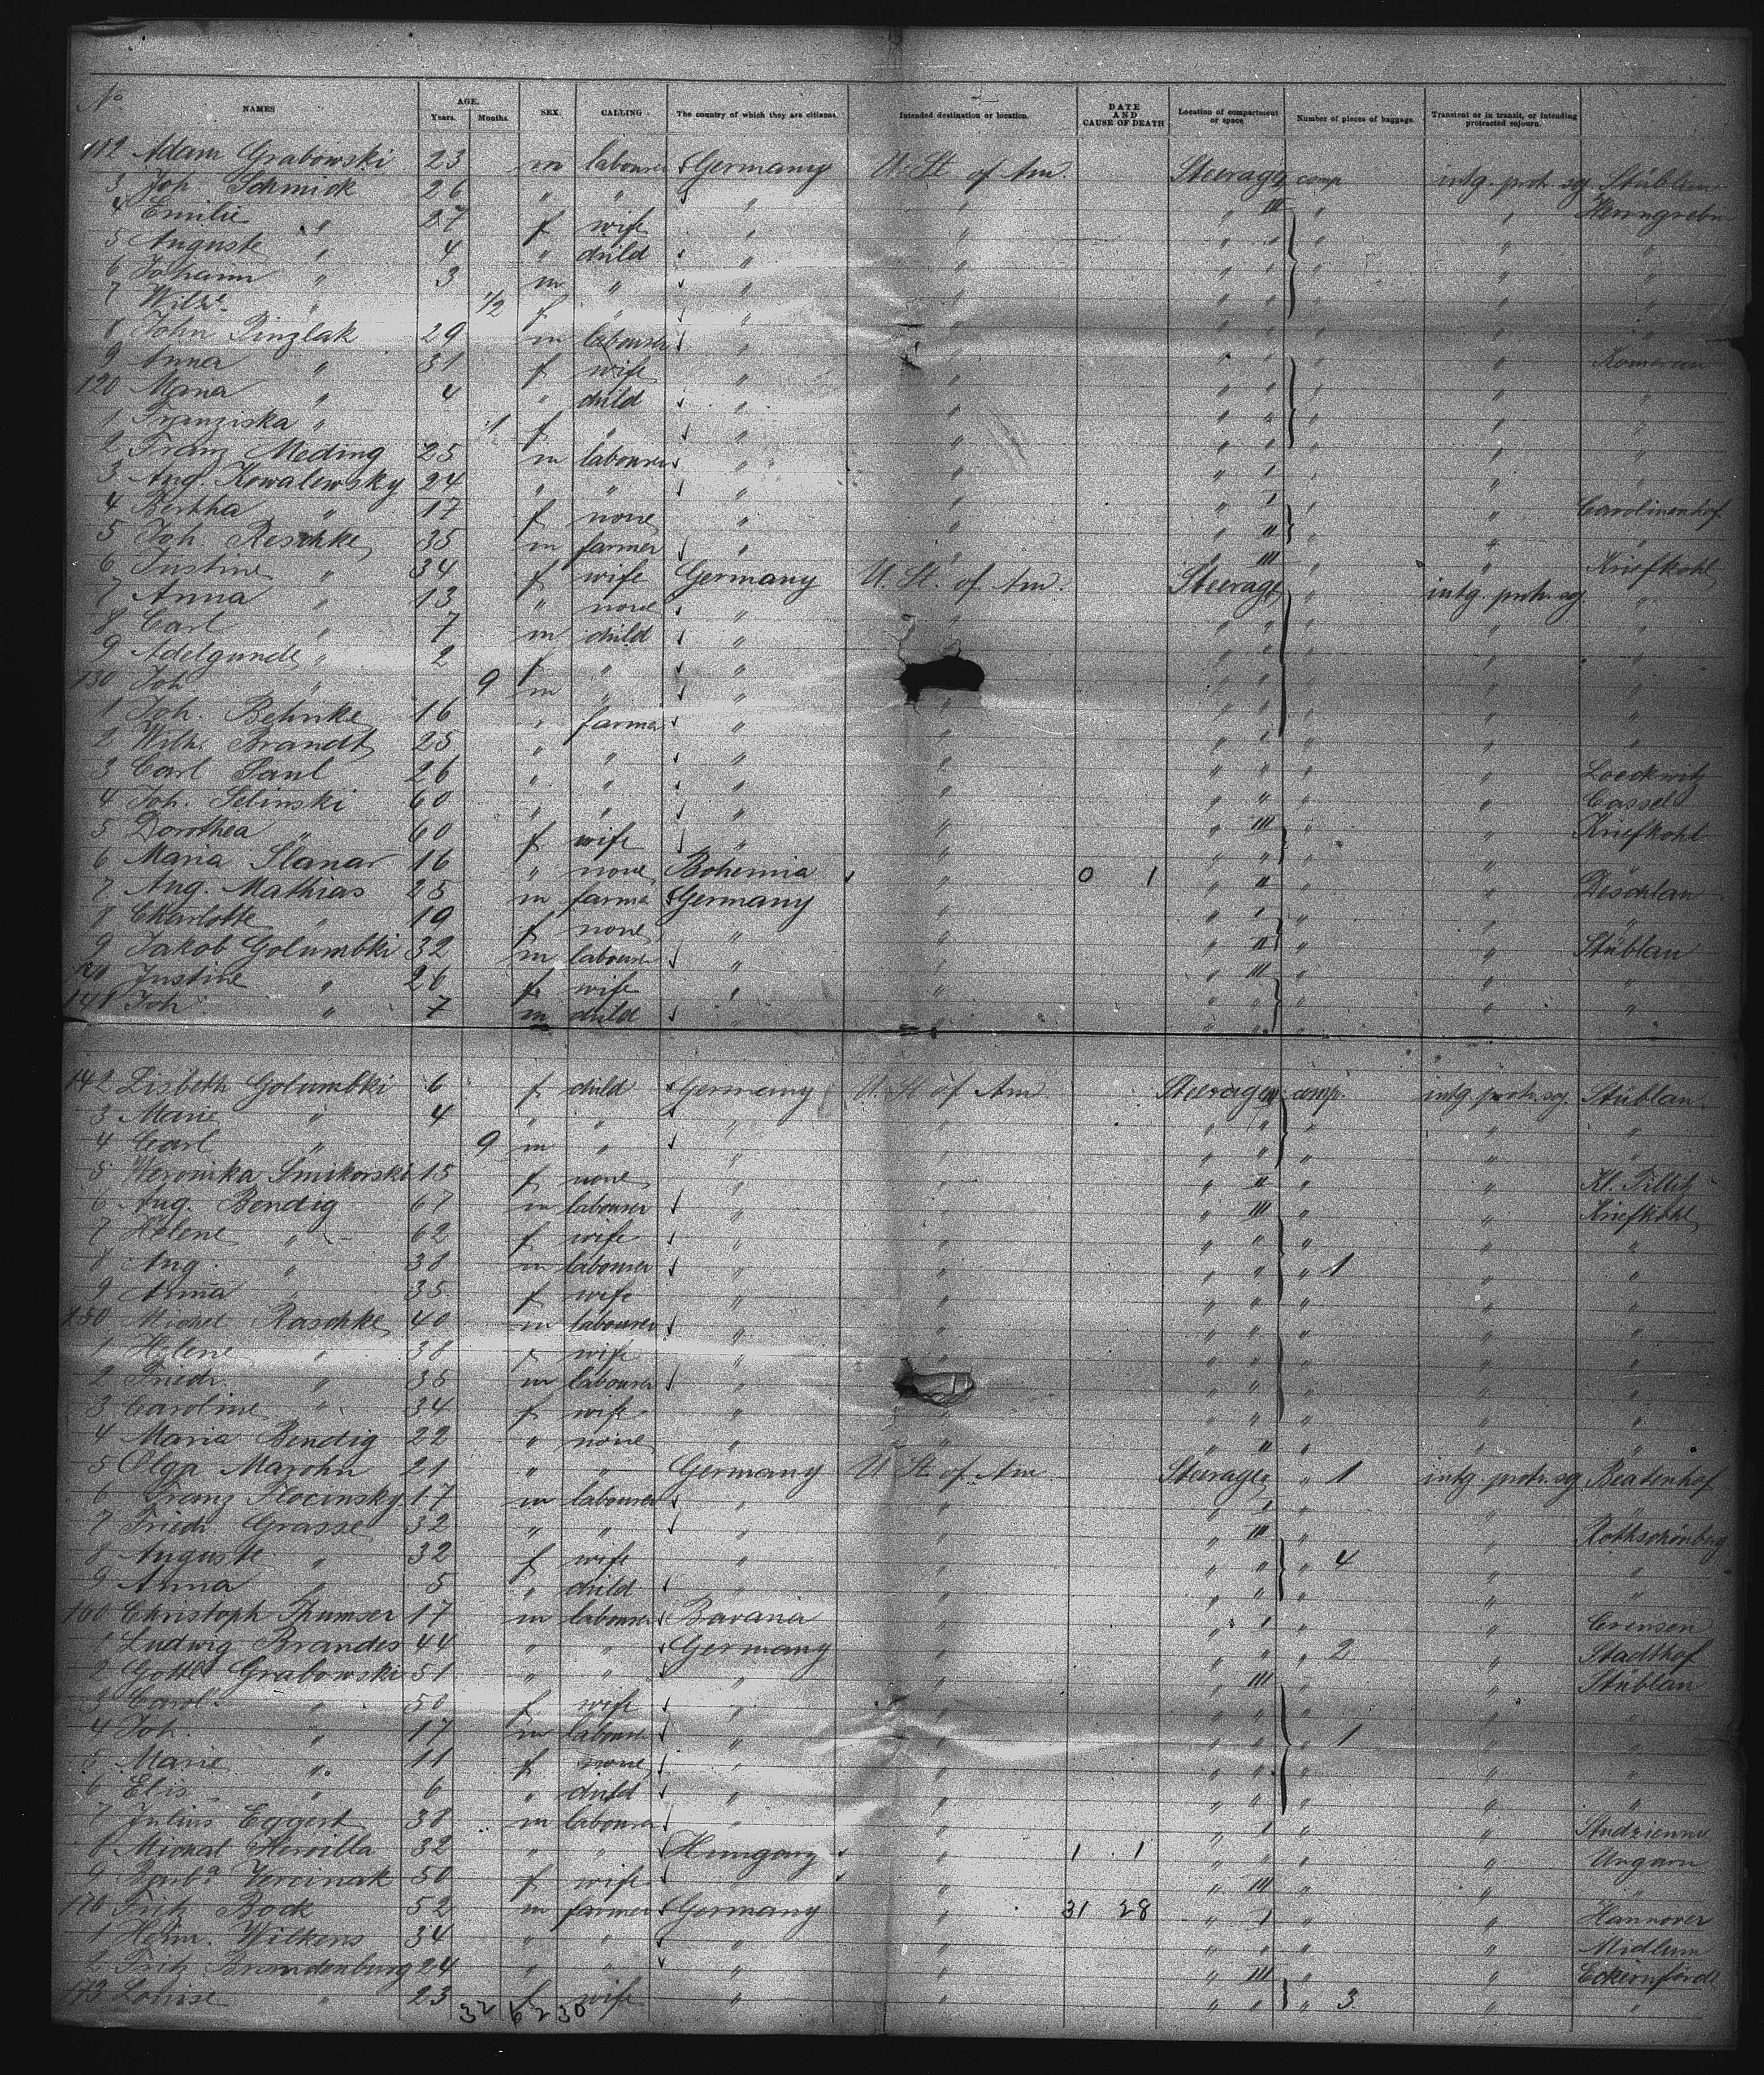 No NAMES AGE. Years. Months. SEX. CALLING The country of which they are citizens. Intended destination or location. DATE AND CAUSE OF DEATH Location of compartment or space Number of pieces of baggage. Transient or in transit, or intending protracted sojourn.
112 Adam Grabowski 23 m labourer Germany U. St. of Am. Steerage comp intg. protr. sg Stüblau
3 Joh. Schmidt 26 " " " " " III " "
4 Emilie " 27 f wife " " " " " "
5 Auguste " 4 " child " " " " " "
6 Johann " 3 m " " " " " " "
7 Wilhe " 1/2 f " " " " " " "
8 John Pinzlak 29 m labourer " " " " " "
9 Anna " 31 f wife " " " " "
120 Maria " 4 " child " " " " " "
1 Franziska " 1 f " " " " " " "
2 Franz Meding 25 m labourer " " " " " "
3 Aug. Kowalewsky 24 " " " " " I "
4 Bertha " 17 f none " " " " Carolinenhof
5 Joh. Reschke 35 m farmer " " " II " " "
6 Justine " 34 f wife Germany U. St. of Am. Steerage III " " Kriefkohl
7 Anna " 13 " none " " " intg. protr. sg "
8 Carl " 7 m child " " " " " "
9 Adelgunde " 2 f " " " " " "
130 Joh. " 9 m " " " " " "
1 Joh. Behnke 16 " farmer " " " " " "
2 Wilh. Brandt 25 " " " " " " "
3 Carl Paul 26 " " " " " " " " Loeckwitz
4 Joh. Selinski 60 " " " " " " " " Cassel
5 Dorothea " 60 f wife " " " III " Kriefkohl
6 Maria Slanar 16 " none Bohemia " 0 1 " " "
7 Aug. Mathias 25 m farmer Germany " " II "
8 Charlotte " 19 f none " " " I " "
9 Jakob Golumbki 32 m labourer " " " II " " Stüblau
140 Justine " 26 f wife " " " III " " "
141 Joh. " 7 m child " " " " " "
142 Lisbeth Golumbki 6 f child Germany U. St of Am Steerage comp. intg. protr. sg. Stüblau
3 Marie " 4 " " " " " " " " "
4 Carl " 9 m " " " " " " " "
5 Veronika Smikorski 15 f none " " " II " " Kl. Tillitz
6 Aug. Bendig 67 m labourer " " " III " " Kriefkohl
7 Helene " 62 f wife " " " " " " "
8 Aug. " 38 m labourer " " " " " 1 " "
9 Anna " 35 f wife " " " " " " "
150 Michel Raschke 40 m labourer " " " " " " "
1 Helene " 38 f wife " " " " " " "
2 Friedr. " 35 m labourer " " " " " "
3 Caroline " 34 f wife " " " " " " "
4 Maria Bendig 22 " none " " " II " " "
5 Olga Marohn 21 " " Germany U. St. of Am Steerage " 1 intg. protr. sg Beatenhof
6 Franz Flocinsky 17 m labourer " " " I " " "
7 Friedr. Grasse 32 " " " " " III " " Rothschönberg
8 Auguste " 32 f wife " " " " " 4 " "
9 Anna " 5 " child " " " " " " "
160 Christoph Thumser 17 m labourer Bavaria " " I " Crensen
1 Ludwig Brandes 44 " " Germany " " " " 2 " Stadthof
2 Gottl. Grabowski 51 " " " " " III " Stüblau
3 Carol. " 50 f wife " " " " " " "
4 Joh. " 17 m labourer " " " " " 1 " "
5 Marie " 11 f none " " " " " " "
6 Elis " 6 " child " " " " " " "
7 Julius Eggert 38 m labourer " " " I " "
8 Michal Horvilla 32 " " Hungary " 1 1 " " " " Ungarn
9 Barba Vercinak 50 f wife " " " III " " "
170 Fritz Bock 52 m farmer Germany " 31 28 " I " " Hannover
1 Heinr. Wilkens 34 " " " " " " " " Midlum
2 Fritz Brandenburg 24 " " " " " III " " Eckernförde
173 Louise " 23 f wife " " " " 3 " "
32 6 2 30